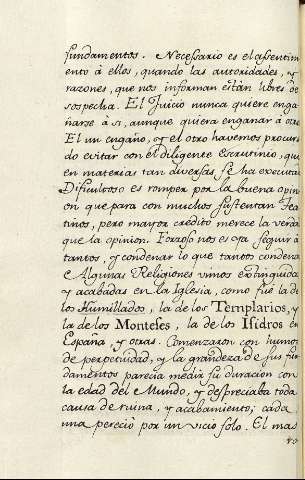 fundamentos. Necessario es el assentim
iento à ellos, quando las autoridades, y
razones, que nos informan están libres de
sospecha. El Juicio nunca quiere enga
ñarse à si, aunque quiera enganar à otro
El un engaño, y el otro havemos procura
do evitar con el diligente Escrutinio, que
en materias tan diversas se ha executado
Dificultoso es romper por la buena opin
on que para con muchos sustentan
tinos, pero mayor credito merece la verda
que la opinion. Forzoso nos es ya seguir à
tantos, y condenar lo que tantos condena
Algunas Religiones vimos extinguida
y acabadas en la Iglesia, como fué la de
los Humillados, la de los Templarios, y
la de los Monteses, la de los Isidros en
España, y otras. Comenzaron con humos
de perpetuidad, y la grandeza de sus fun
damentos parecia medir su duracion con
la edad del Mundo, y despreciaba toda
causa de ruina, y acabamiento; cada
una pereció por un vicio solo. El mas